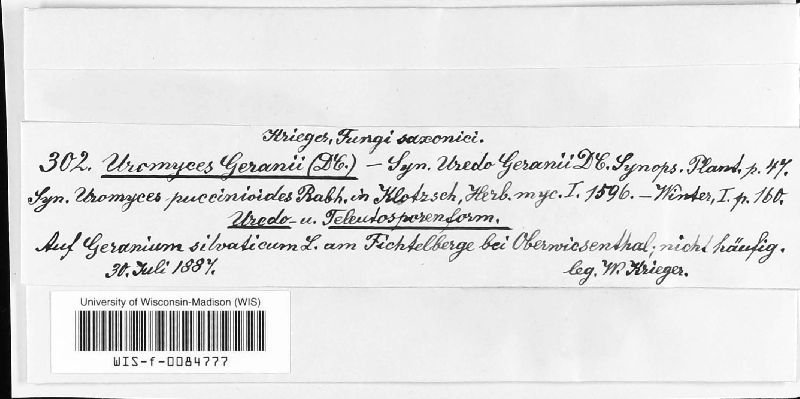 Krieger, Fungi saxonici.
302. Uromyces Geranii (DC.) — Syn. Uredo Geranii DC. Synops. Plant. p. 47.
Syn. Uromyces puccinioides Rabh. in Klotzsch, Herb. myc. I. 1596. — Winter, I. p. 160.
Uredo- u. Teleutosporenform.
Auf Geranium silvaticum L. am Fichtelberge bei Oberwiesenthal; nicht häufig.
30. Juli 1887. leg. W. Krieger.
University of Wisconsin-Madison (WIS)
WIS-f-0084777